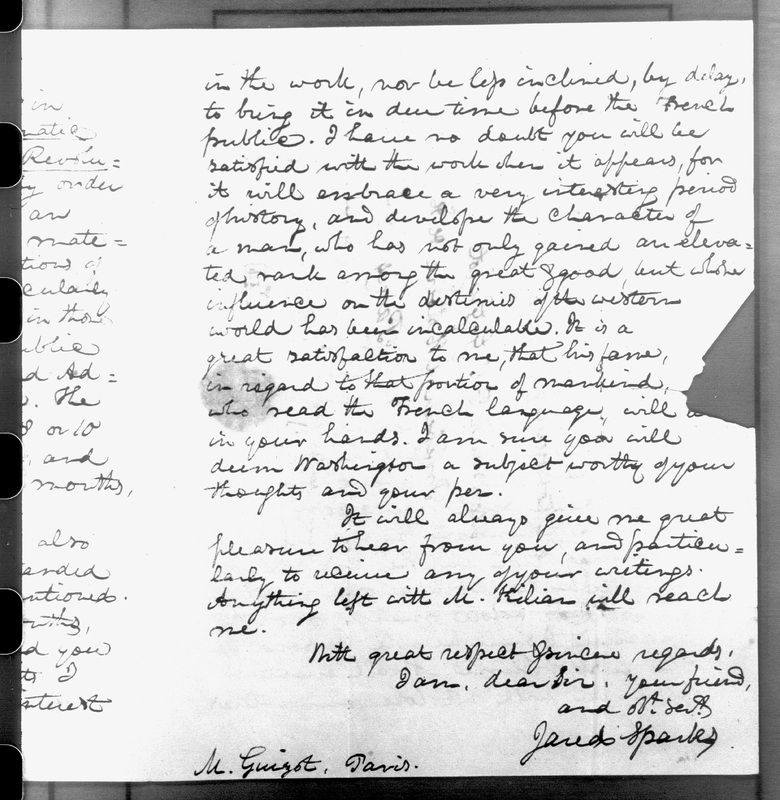 in
matic
Revolu=
order
an
mate=
tions of
cularly
in those
ublic
d Ad=
. The
8 or 10
, and
months,
also
anded
ntioned.
nths,
d you
ts I
interest
in the work, nor be less inclined, by delay,
to bring it in due time before the French
public. I have no doubt you will be
satisfied with the work when it appears, for
it will embrace a very interesting period
of history, and develope the character of
a man, who has not only gained an eleva=
ted rank among the great & good, but whose
influence on the destinies of the western
world has been incalculable. It is a
great satisfaction to me, that his fame,
in regard to that portion of mankind,
who read the French language, will
in your hands. I am sure you will
deem Washington a subject worthy of your
thoughts and your pen.
It will always give me great
pleasure to hear from you, and particu=
larly to receive any of your writings.
Anything left with M. Kilian will reach
me.
With great respect & sincere regards,
I am, dear Sir, your friend,
and obt. servt.
Jared Sparks
M. Guizot, Paris.